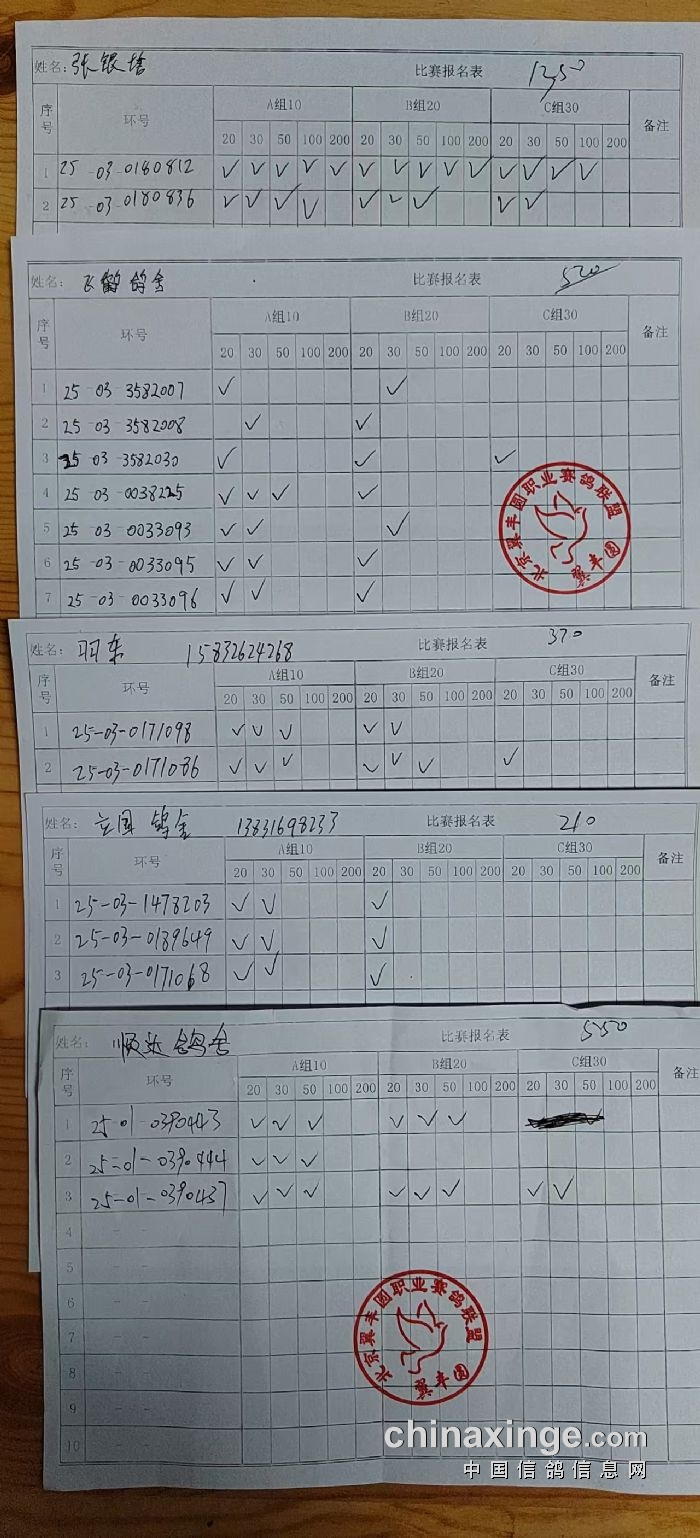 姓名: 张银塔 比赛报名表 1250
序号 环号 A组10 B组20 C组30 备注
20 30 50 100 200 20 30 50 100 200 20 30 50 100 200
1 25-03-0180812 ✓ ✓ ✓ ✓ ✓ ✓ ✓ ✓ ✓ ✓ ✓ ✓ ✓ ✓
2 25-03-0180836 ✓ ✓ ✓ ✓ ✓ ✓ ✓ ✓ ✓
姓名: 飞鹤鸽舍 比赛报名表 520
序号 环号 A组10 B组20 C组30 备注
20 30 50 100 200 20 30 50 100 200 20 30 50 100 200
1 25-03-3582007 ✓ ✓
2 25-03-3582008 ✓ ✓
3 25-03-3582030 ✓ ✓ ✓
4 25-03-0038225 ✓ ✓ ✓ ✓
5 25-03-0033093 ✓ ✓ ✓
6 25-03-0033095 ✓ ✓ ✓
7 25-03-0033096 ✓ ✓ ✓
北京翼丰圆职业赛鸽联盟
翼丰圆
姓名: 羽东 15832624268 比赛报名表 370
序号 环号 A组10 B组20 C组30 备注
20 30 50 100 200 20 30 50 100 200 20 30 50 100 200
1 25-03-0171098 ✓ ✓ ✓ ✓ ✓
2 25-03-0171086 ✓ ✓ ✓ ✓ ✓ ✓ ✓
姓名: 立国鸽舍 13831698233 比赛报名表 210
序号 环号 A组10 B组20 C组30 备注
20 30 50 100 200 20 30 50 100 200 20 30 50 100 200
1 25-03-1478203 ✓ ✓ ✓
2 25-03-0189649 ✓ ✓ ✓
3 25-03-0171068 ✓ ✓ ✓
姓名: 顺达鸽舍 比赛报名表 550
序号 环号 A组10 B组20 C组30 备注
20 30 50 100 200 20 30 50 100 200 20 30 50 100 200
1 25-01-0390443 ✓ ✓ ✓ ✓ ✓ ✓
2 25-01-0390444 ✓ ✓ ✓
3 25-01-0390437 ✓ ✓ ✓ ✓ ✓ ✓ ✓ ✓
4 - -
5 - -
6 - -
7 - -
8 - -
9 - -
10 - -
北京翼丰圆职业赛鸽联盟
翼丰圆
chinaxinge.com
中国信鸽信息网